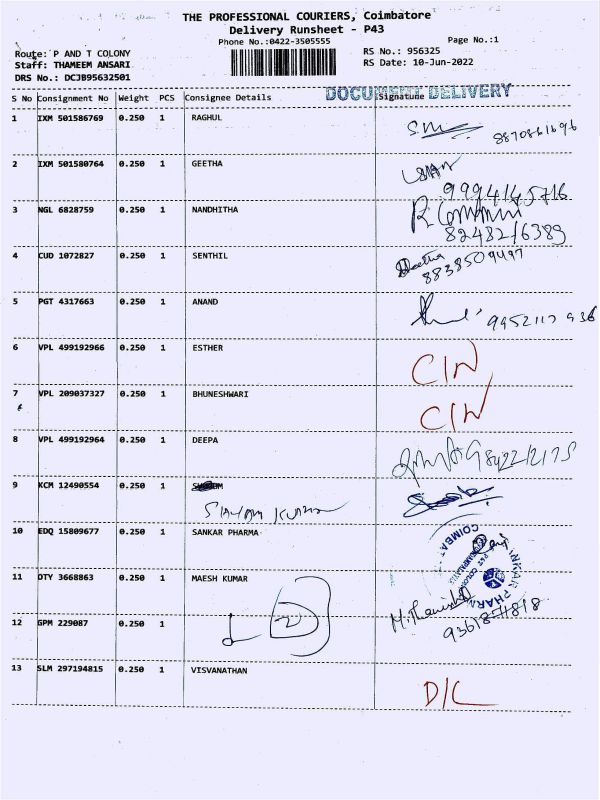 THE PROFESSIONAL COURIERS, Coimbatore
Delivery Runsheet - P43
Phone No.:0422-3505555
Page No.:1
Route: P AND T COLONY
RS No.: 956325
Staff: THAMEEM ANSARI
RS Date: 10-Jun-2022
DRS No.: DCJB95632501
DOCUMENT DELIVERY
S No Consignment No Weight PCS Consignee Details Signature
1 IXM 501586769 0.250 1 RAGHUL
2 IXM 501580764 0.250 1 GEETHA
9994145716
3 NGL 6828759 0.250 1 NANDHITHA
8248216389
4 CUD 1072827 0.250 1 SENTHIL Geetha
8838509497
5 PGT 4317663 0.250 1 ANAND
9952117936
6 VPL 499192966 0.250 1 ESTHER C/N
7 VPL 209037327 0.250 1 BHUNESHWARI C/N
8 VPL 499192964 0.250 1 DEEPA
9842212175
9 KCM 12490554 0.250 1
10 EDQ 15809677 0.250 1 SANKAR PHARMA
11 OTY 3668863 0.250 1 MAESH KUMAR
9361871818
12 GPM 229087 0.250 1
13 SLM 297194815 0.250 1 VISVANATHAN D/L